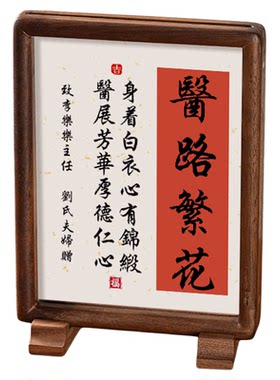 醫路繁花
身着白衣心有錦緞
醫展芳華厚德仁心
致李樂樂主任 劉氏夫婦贈
吉
福